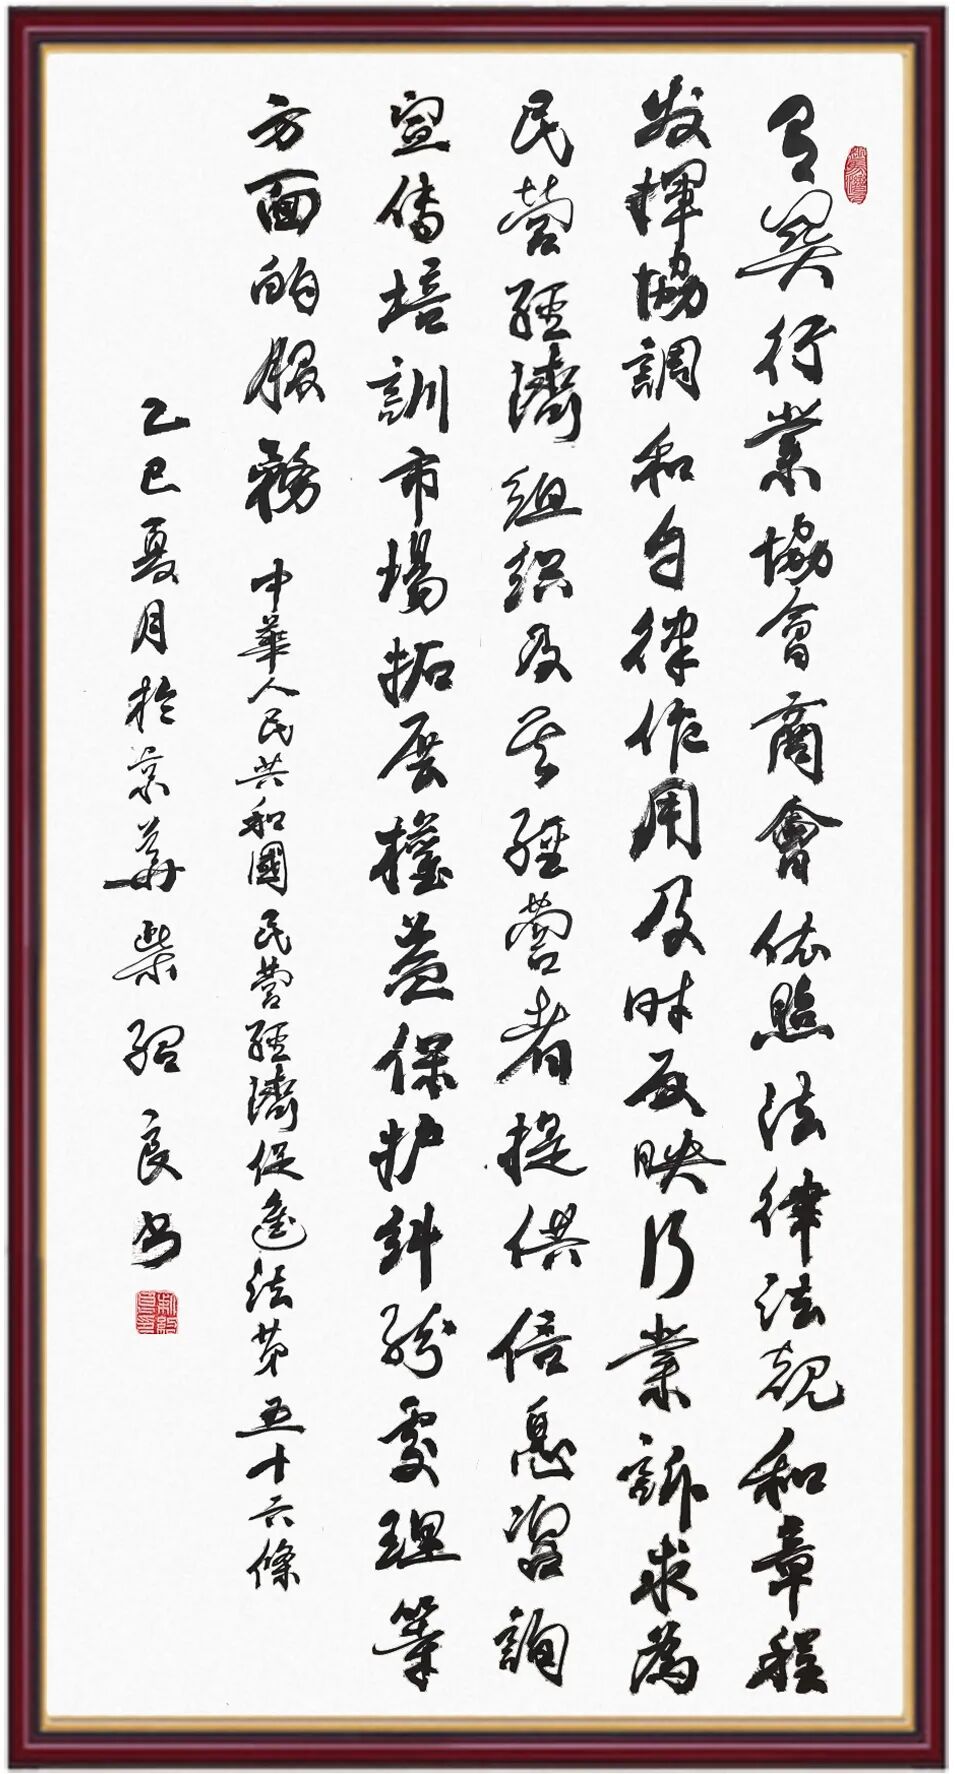 有關行業協會商會依照法律法規和章程
发揮協調和自律作用及时反映行業訴求為
民營經濟组织及其經營者提供信息咨詢
宣傳培訓市場拓展權益保护糾紛處理等
方面的服務 中華人民共和國民營經濟促進法第五十六條
乙巳夏月於京華柴紹良书